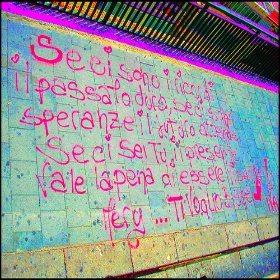 Se ci sono i ricordi
il passato dura, se ci sono
speranze il futuro
Se ci sei Tu, il presente
vale la pena di essere
Mery ... Ti voglio bene